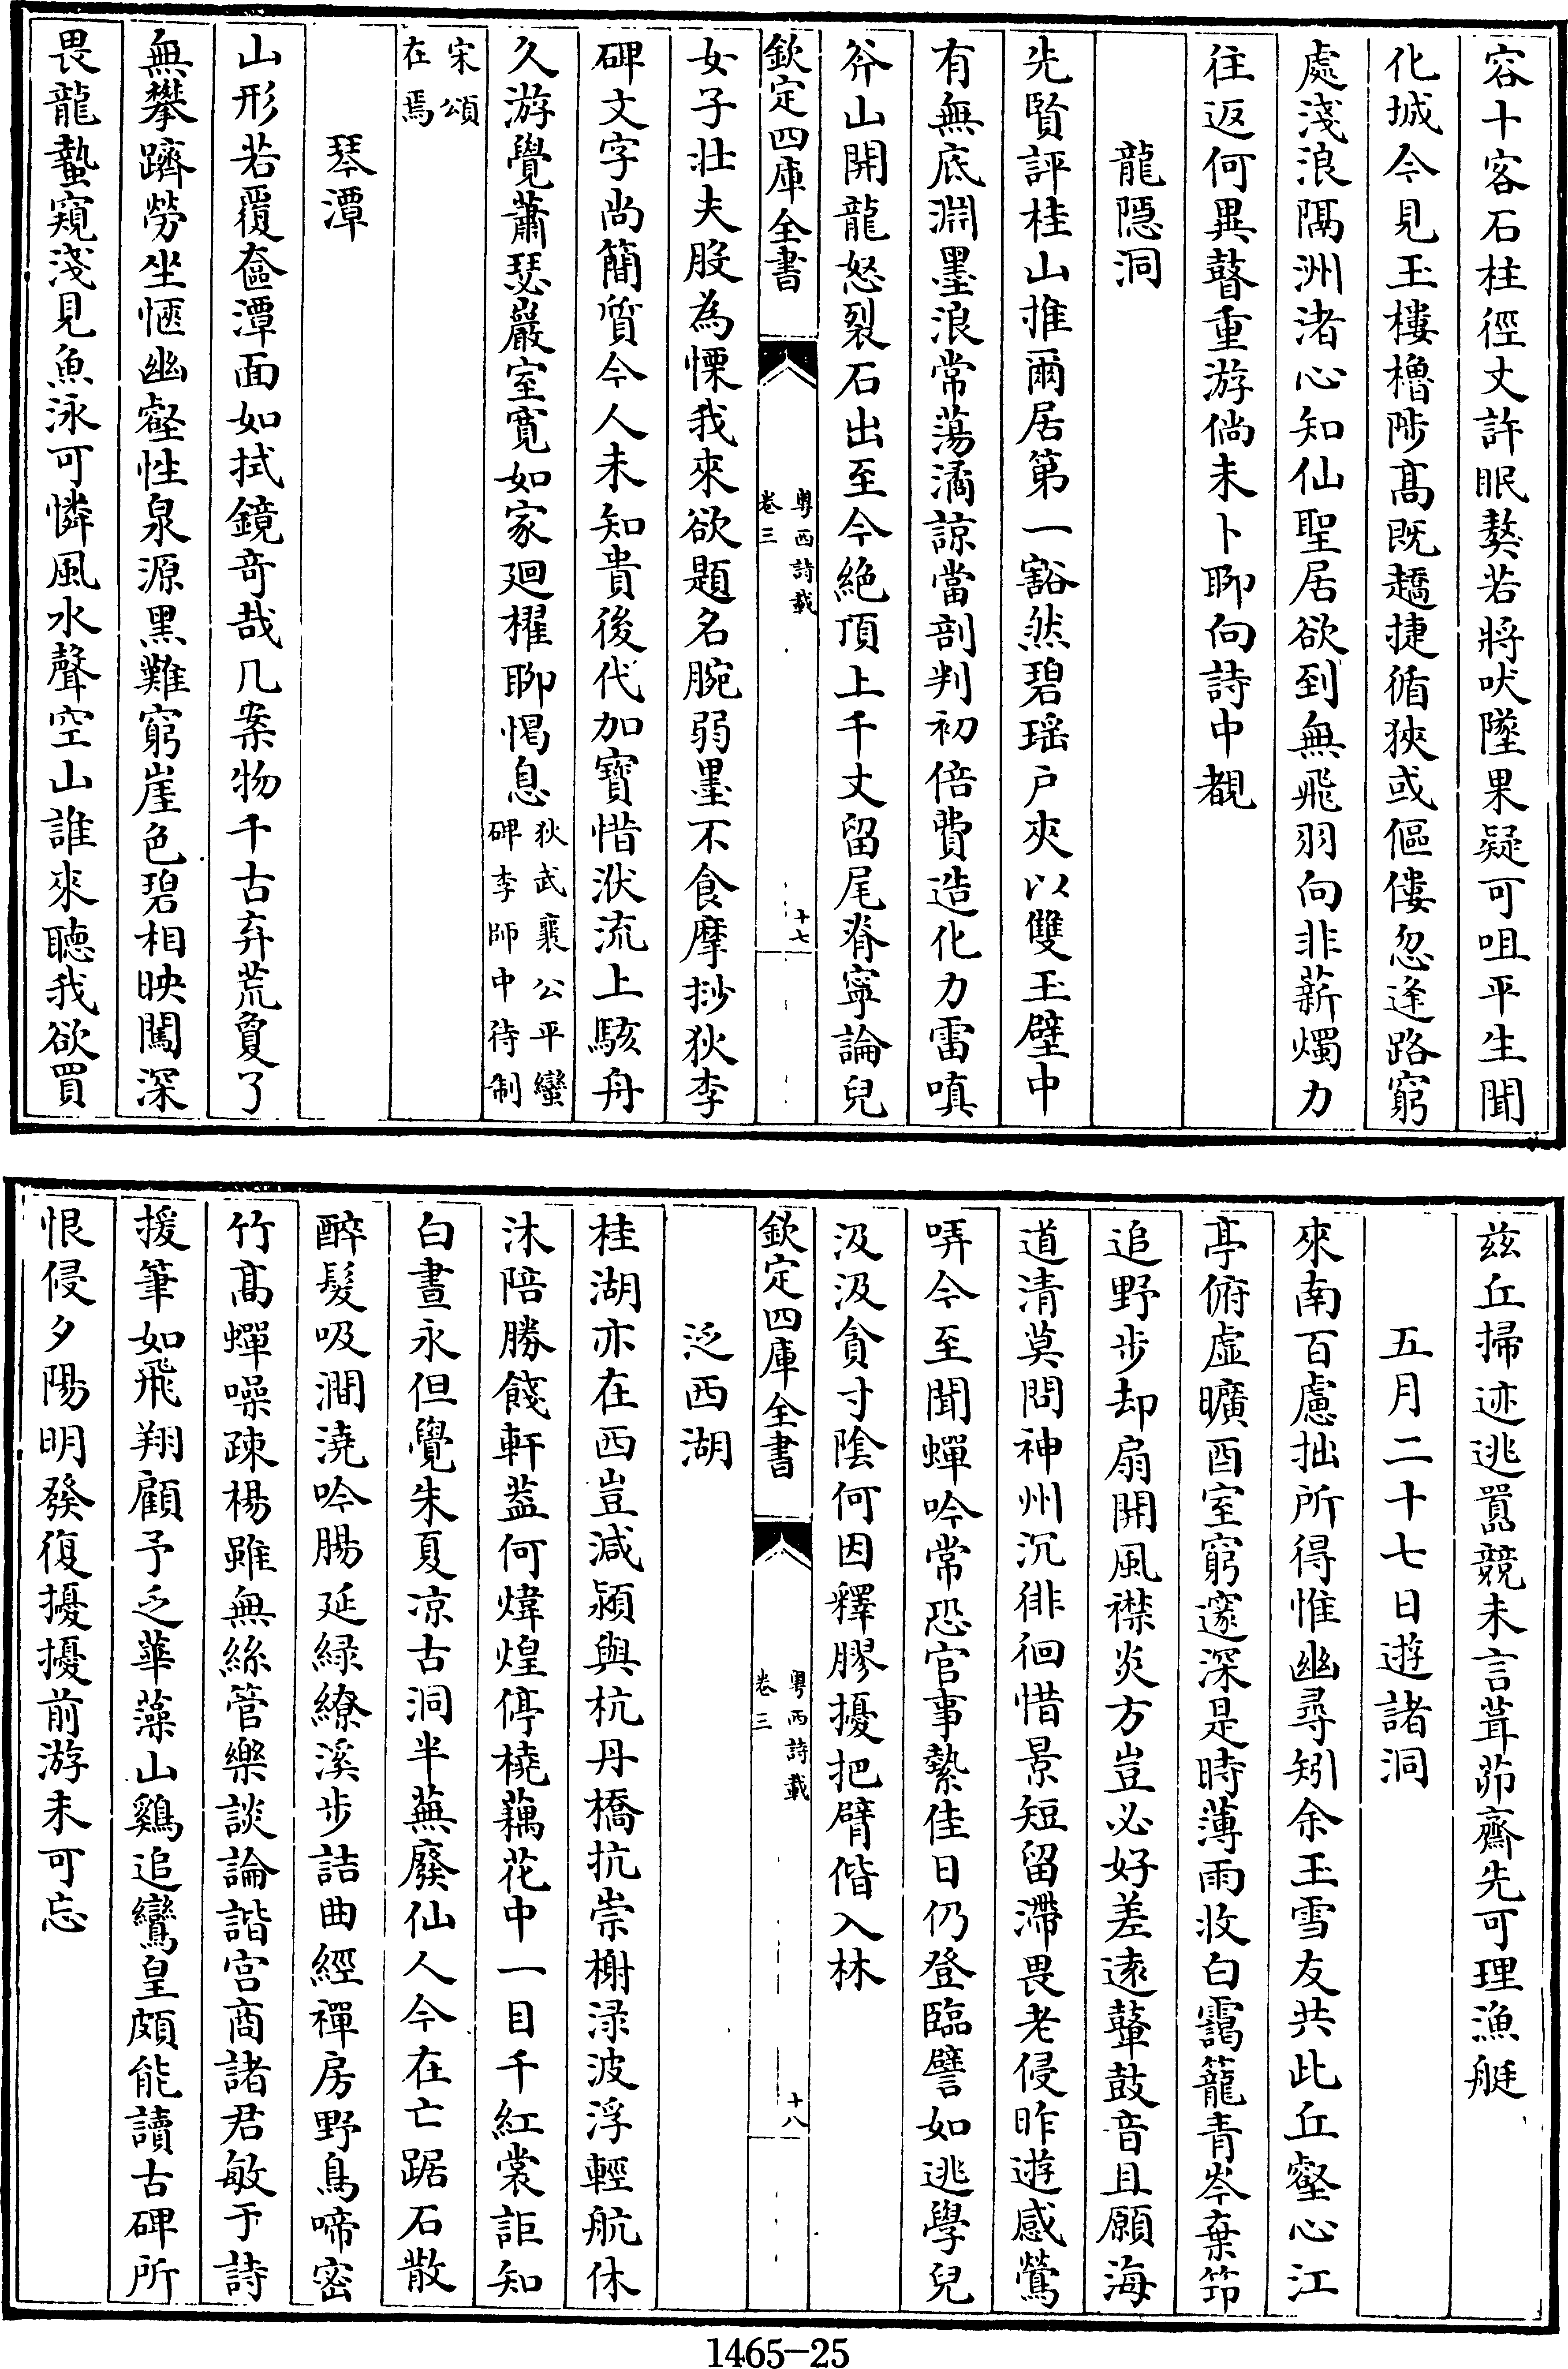 容十客石柱徑丈許眠獒若將吠墜果疑可咀平生聞
化城今見玉樓櫓陟髙既趫捷循狹或傴僂忽逢路窮
處淺浪隔洲渚心知仙聖居欲到無飛羽向非薪燭力
往返何異瞽重游倘未卜聊向詩中覩
龍隠洞
先賢評桂山推爾居第一豁然碧瑶户夾以雙玉壁中
有無底淵墨浪常蕩潏諒當剖判初倍費造化力雷嗔
斧山開龍怒裂石出至今絶頂上千丈留尾脊寧論兒
欽定四庫全書
粤西詩載
卷三
十七
女子壯夫股為慄我來欲題名腕弱墨不食摩挱狄李
碑文字尚簡質今人未知貴後代加寶惜洑流上駭舟
久游覺蕭瑟巖室寛如家廻櫂聊愒息
狄武襄公平蠻
碑李師中待制
宋頌
在焉
琴潭
山形若覆奩潭面如拭鏡奇哉几案物千古弃荒敻了
無攀躋勞坐愜幽壑性泉源黒難窮崖色碧相映闖深
畏龍蟄窺淺見魚泳可憐風水聲空山誰來聽我欲買
兹丘掃迹逃囂競未言葺茆齋先可理漁艇
五月二十七日遊諸洞
來南百慮拙所得惟幽尋矧余玉雪友共此丘壑心江
亭俯虚曠酉室窮邃深是時薄雨收白靄籠青岑棄笻
追野步却扇開風襟炎方豈必好差逺鼙鼓音且願海
道清莫問神州沉徘徊惜景短留滯畏老侵昨遊感鶯
哢今至聞蟬吟常恐官事縶佳日仍登臨譬如逃學兒
汲汲貪寸隂何因釋膠擾把臂偕入林
欽定四庫全書
粤西詩載
卷三
十八
泛西湖
桂湖亦在西豈減潁與杭丹橋抗崇榭渌波浮輕航休
沐陪勝餞軒葢何煒煌停橈藕花中一目千紅裳詎知
白晝永但覺朱夏凉古洞半蕪廢仙人今在亡踞石散
醉髮吸澗澆吟腸延緑繚溪步詰曲經禪房野鳥啼密
竹髙蟬噪疎楊雖無絲管樂談論諧宫商諸君敏于詩
援筆如飛翔顧予乏華藻山鷄追鸞皇頗能讀古碑所
恨侵夕陽明發復擾擾前游未可忘
1465-25